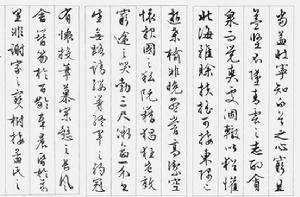 當益壯寧知白首之心窮且
益堅不墜青雲之志酌貪
泉而覺爽處涸轍以猶懽
北海雖賒扶摇可接東隅已
逝桑榆非晚孟嘗高潔空
懷報國之心阮籍猖狂豈效
窮途之哭勃三尺微命一介書
生無路請纓等終軍之弱冠
有懷投筆慕宗慤之長風
舍簪笏於百齡奉晨昏於萬
里非謝家之寶樹接孟氏之